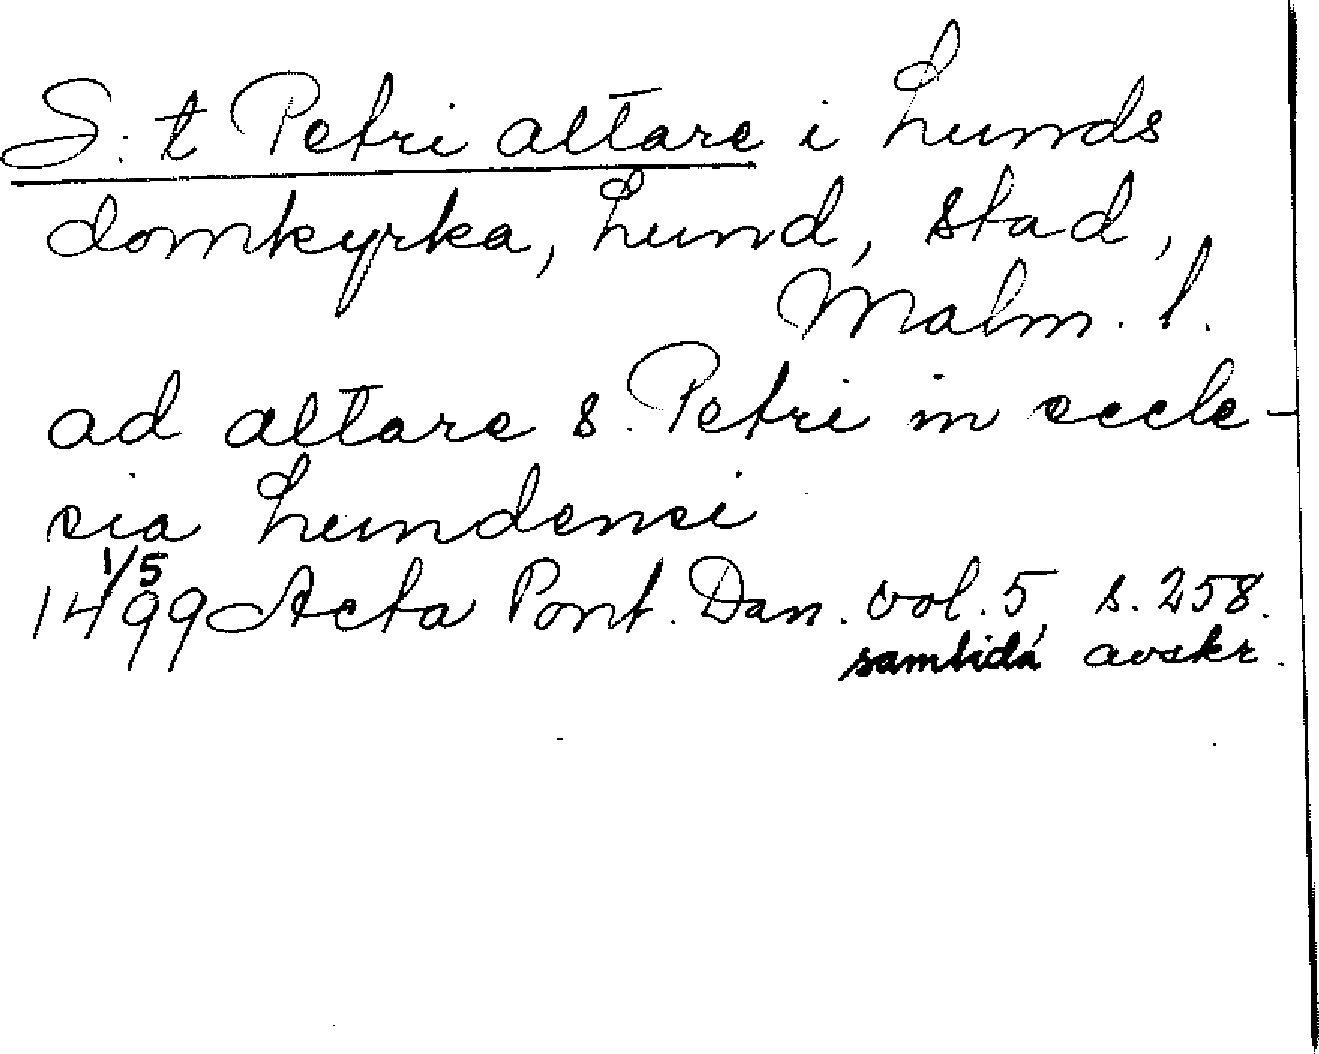 S:t Petri altare i Lunds
domkyrka, Lund, stad,
Malm. l.
ad altare s. Petri in eccle-
sia Lundensi
1/5
1499 Acta Pont. Dan. vol. 5, s. 258.
samtida avskr.